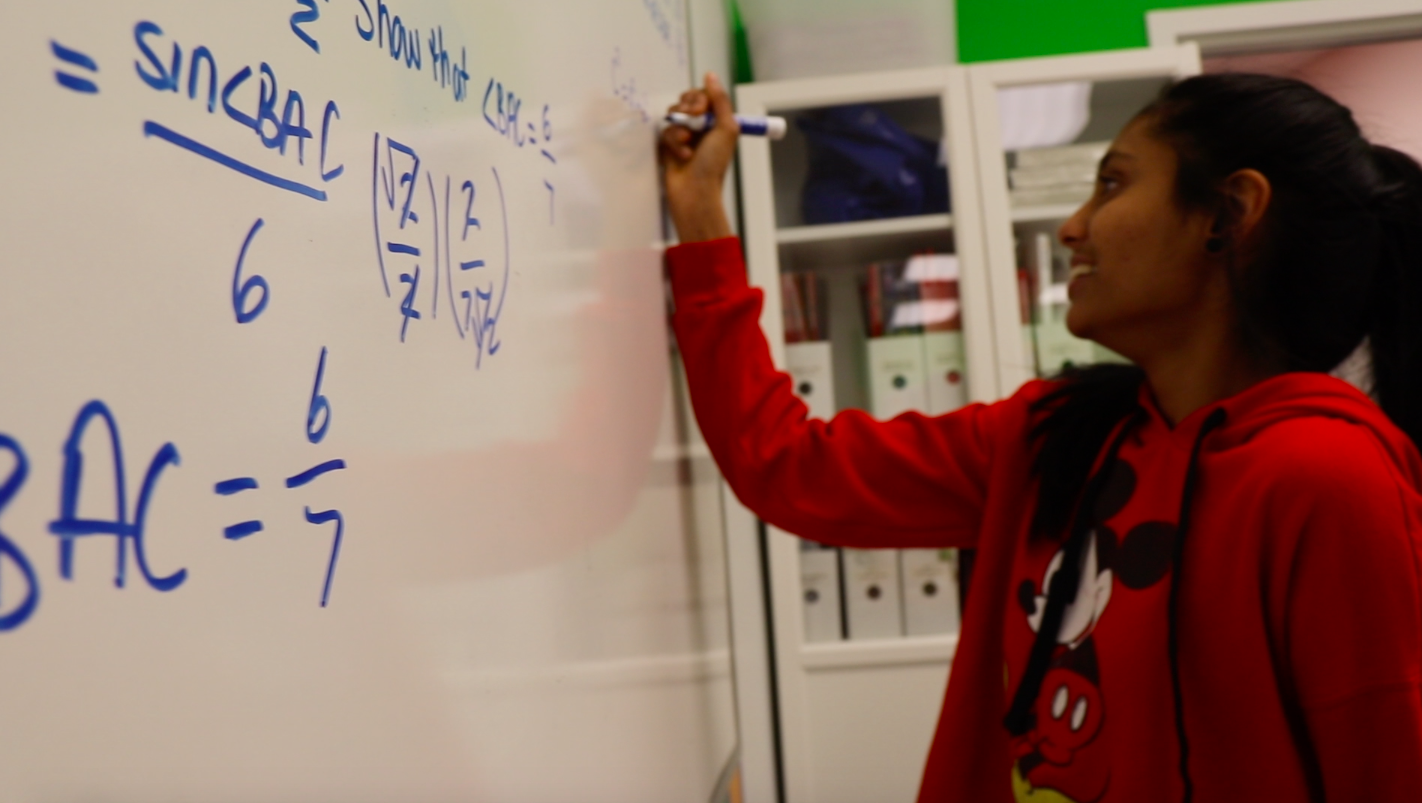 2 Show that <BAC = 6
7
= sin<BAC
6
(√7/7)(2/7√2)
BAC = 6
7